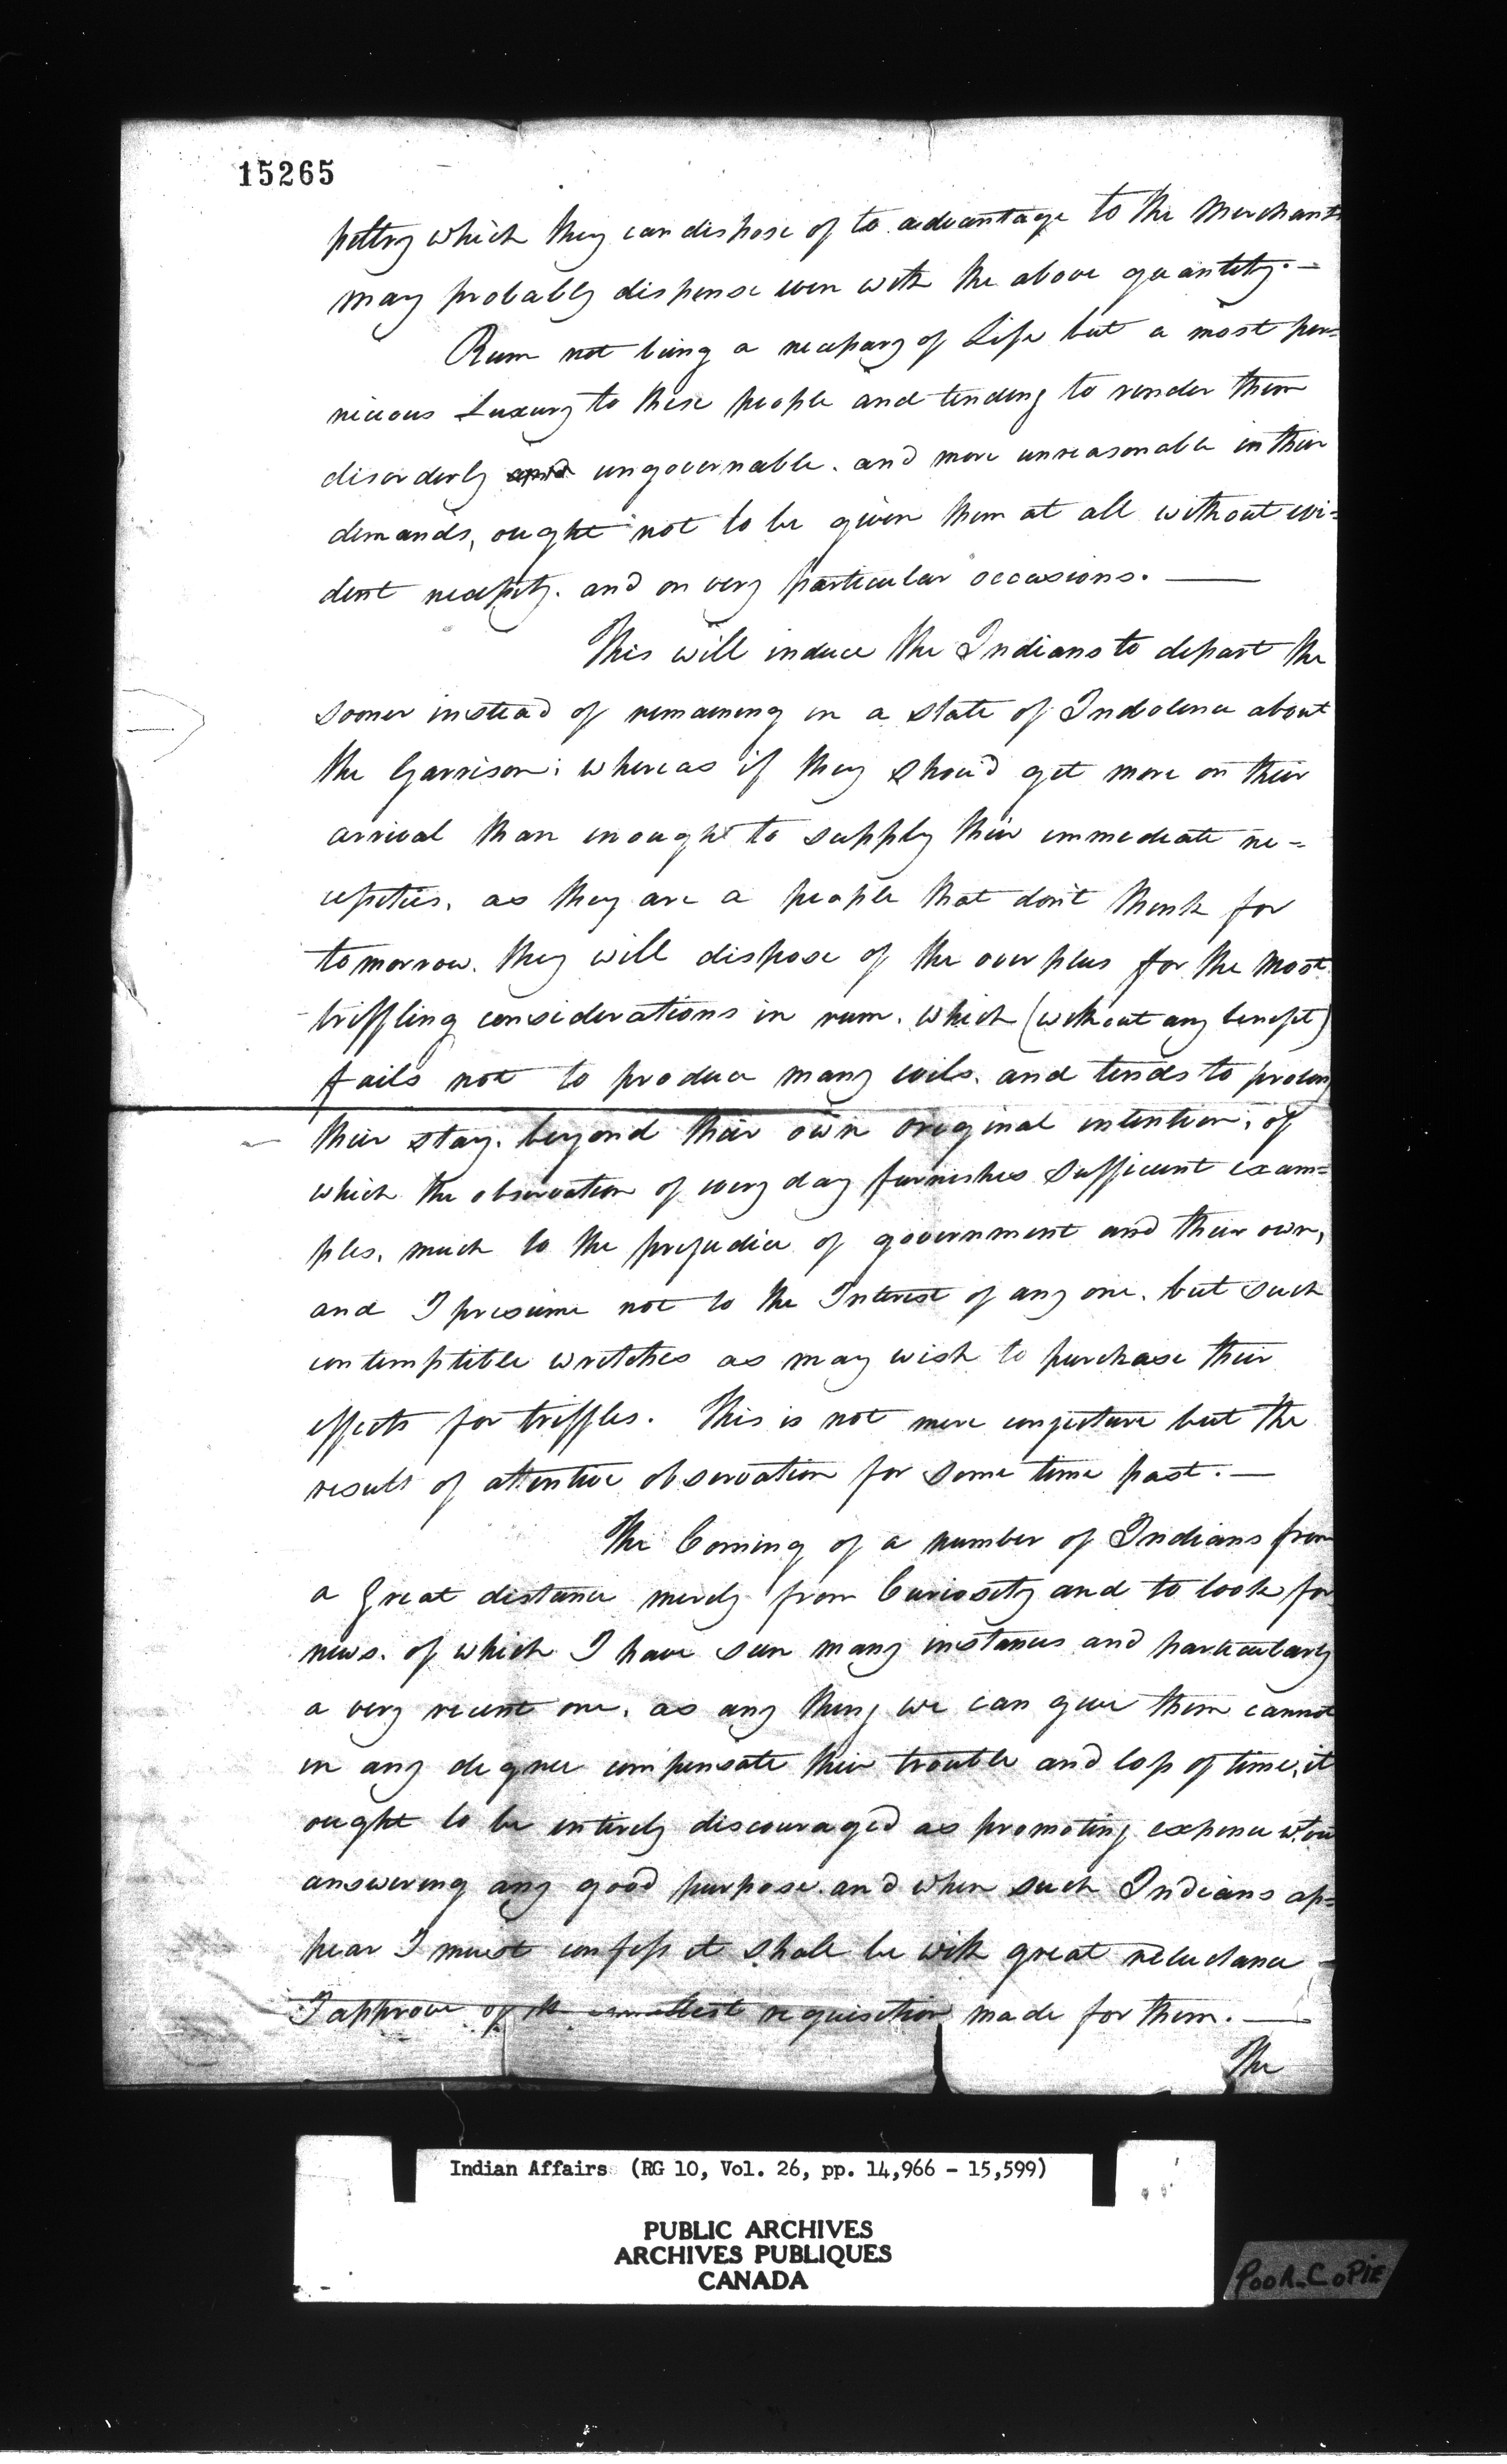 15265
peltry which they can dispose of to advantage to the Merchants
may probably dispense even with the above quantity. —
Rum not being a necessary of Life but a most per=
nicious Luxury to these people and tending to render them
disorderly and ungovernable. and more unreasonable in their
demands, ought not to be given them at all without evi=
dent necessity. and on very particular occasions. —
This will induce the Indians to depart the
sooner instead of remaining in a state of Indolence about
the Garrison; whereas if they shou'd get more on their
arrival than enought to supply their immediate ne=
cessities, as they are a people that don't think for
tomorrow. they will dispose of the overplus for the most
triffling considerations in rum. which (without any benefit)
fails not to produce many evils. and tends to prolong
their stay. beyond their own original intention; of
which the observation of every day furnishes sufficient exam=
ples, much to the prejudice of government and their own,
and I presume not to the Interest of any one. but such
contemptible wretches as may wish to purchase their
effects for triffles. This is not mere conjecture but the
result of attentive observation for some time past. —
The Coming of a number of Indians from
a Great distance merely from Curiosity and to look for
news. of which I have seen many instances and particularly
a very recent one, as any thing we can give them cannot
in any degree compensate their trouble and loss of time, it
ought to be entirely discouraged as promoting expence wtou
answering any good purpose. and when such Indians ap=
pear I must confess it shall be with great reluctance
I approve of the smallest requisition made for them. —
The
Indian Affairs (RG 10, Vol. 26, pp. 14,966 - 15,599)
PUBLIC ARCHIVES
ARCHIVES PUBLIQUES
CANADA
POOR COPIE